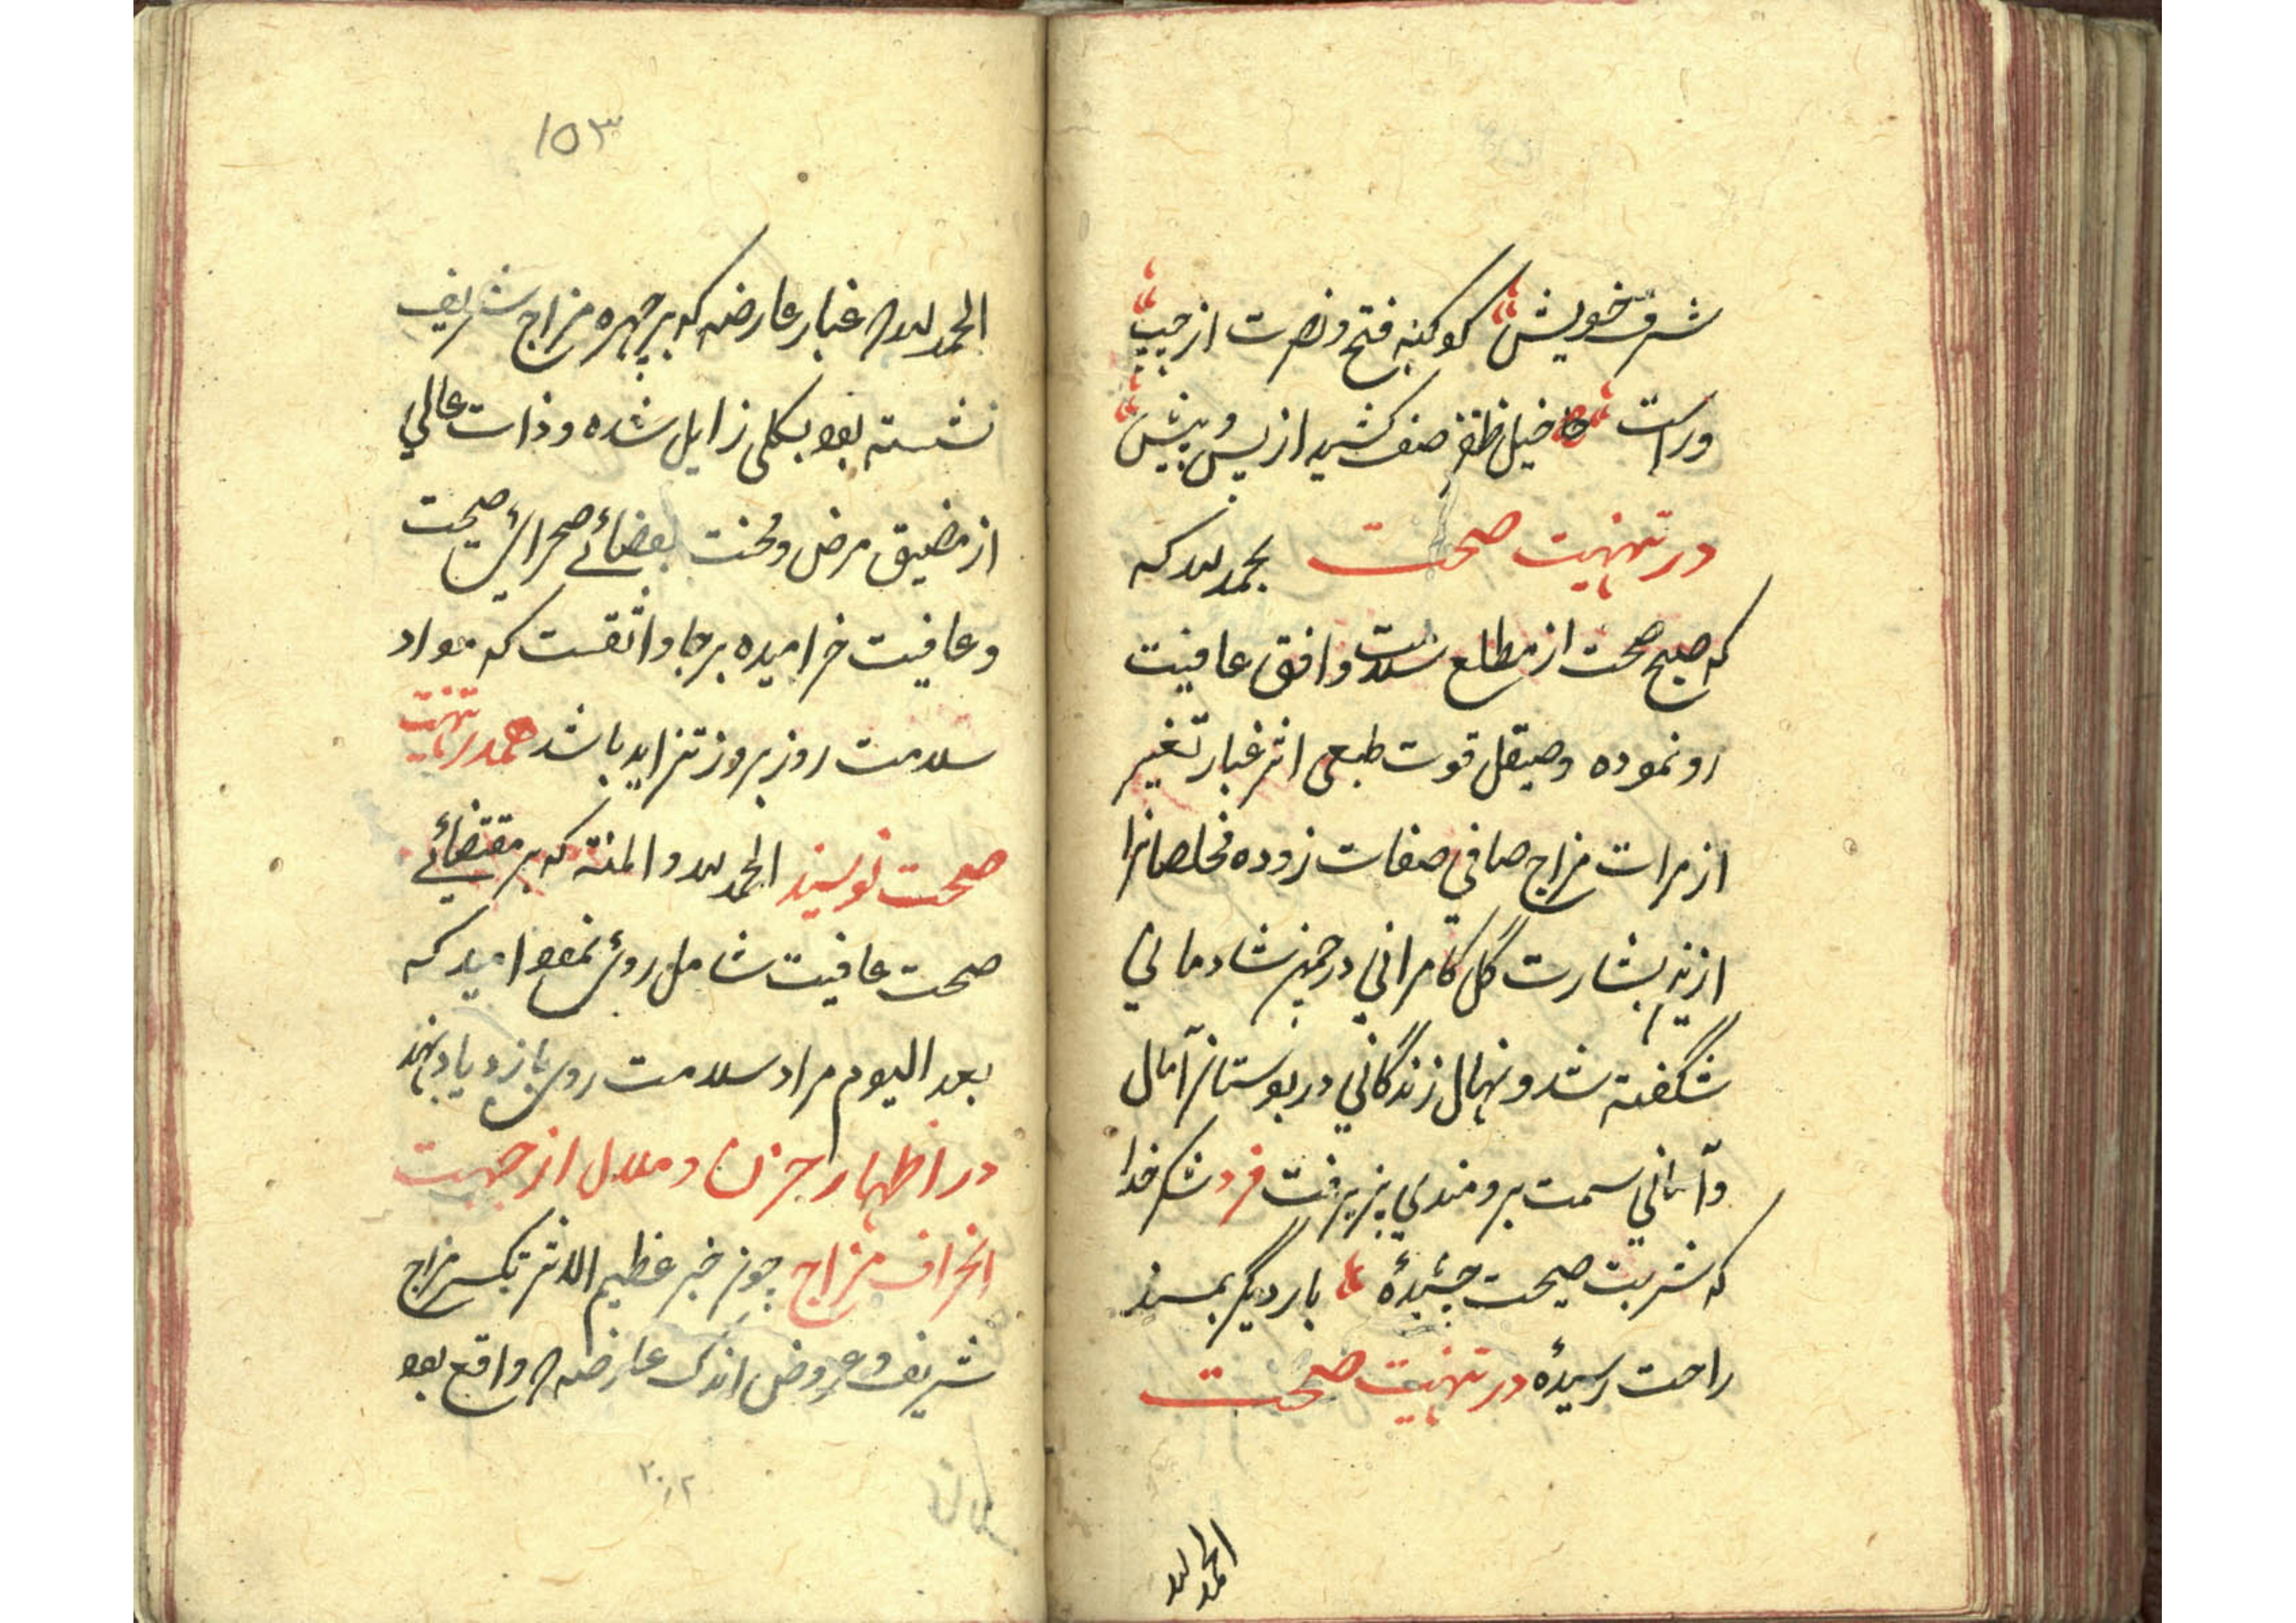 شرف خویش کوکبه فتح و نصرت از چپ
و راست خیل ظفر صف کشید از پس و پیش
در تهنیت صحت بحمد لله که
که صبح صحت از مطلع سلامت و افق عافیت
رو نموده و صیقل قوت طبعی اثر غبار تغیر
از مرات مزاج صافی صفات زدوده مخلصانرا
ازین بشارت گل کامرانی در چمن شادمانی
شگفته شد و نهال زندگانی در بوستان آمال
و امانی سمت برومندی پزیرفت فرد شکر خدا
که شربت صحت چشیدهٔ بار دیگر بمسند
راحت رسیدهٔ در تهنیت صحت
الحمد لله
۱۵۳
الحمد لله غبار عارضه که بر چهره مزاج شریف
نشسته بود بکلی زایل شده و ذات عالی
از مضیق مرض و محنت بفضائے صحرای صحت
و عافیت خرامیده برجا واثقست که مواد
سلامت روز بروز تزاید باشد در تهنیت
صحت نویسند الحمد لله والمنة که بر مقتضائے
صحت عافیت شامل روی نمود امید که
بعد الیوم مراد سلامت روی بازدیاد نهد
در اظهار حزن و ملال از جهت
انحراف مزاج چون خبر عظیم الاثر تکسر مزاج
شریف و عروض اندک عارضه واقع بود